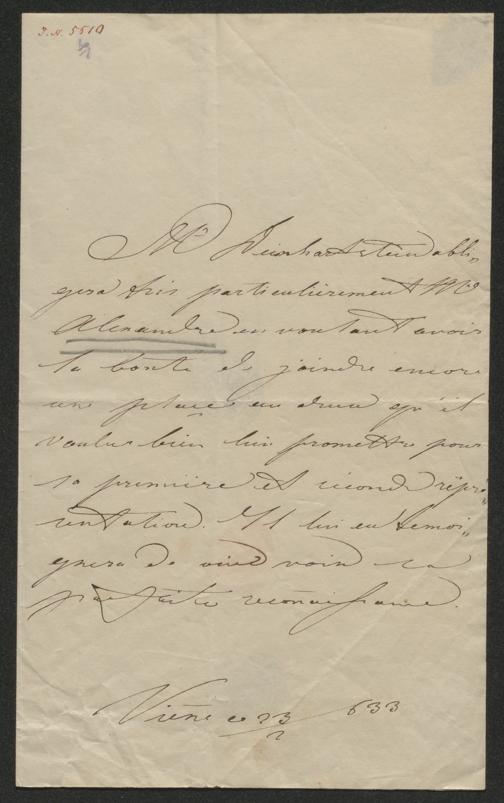 I.N. 5510
Mr Deinhardstein obli„
gera très particulièrement Mr
Alexandre en voulant avoir
la bonté de joindre encore
une place au deux qu'il
voulu bien lui promettre pour
sa première et seconde répré„
sentation. Il lui en temoi„
gnera de vive voix sa
parfaite reconaissance.
Viène ce 23/2 833